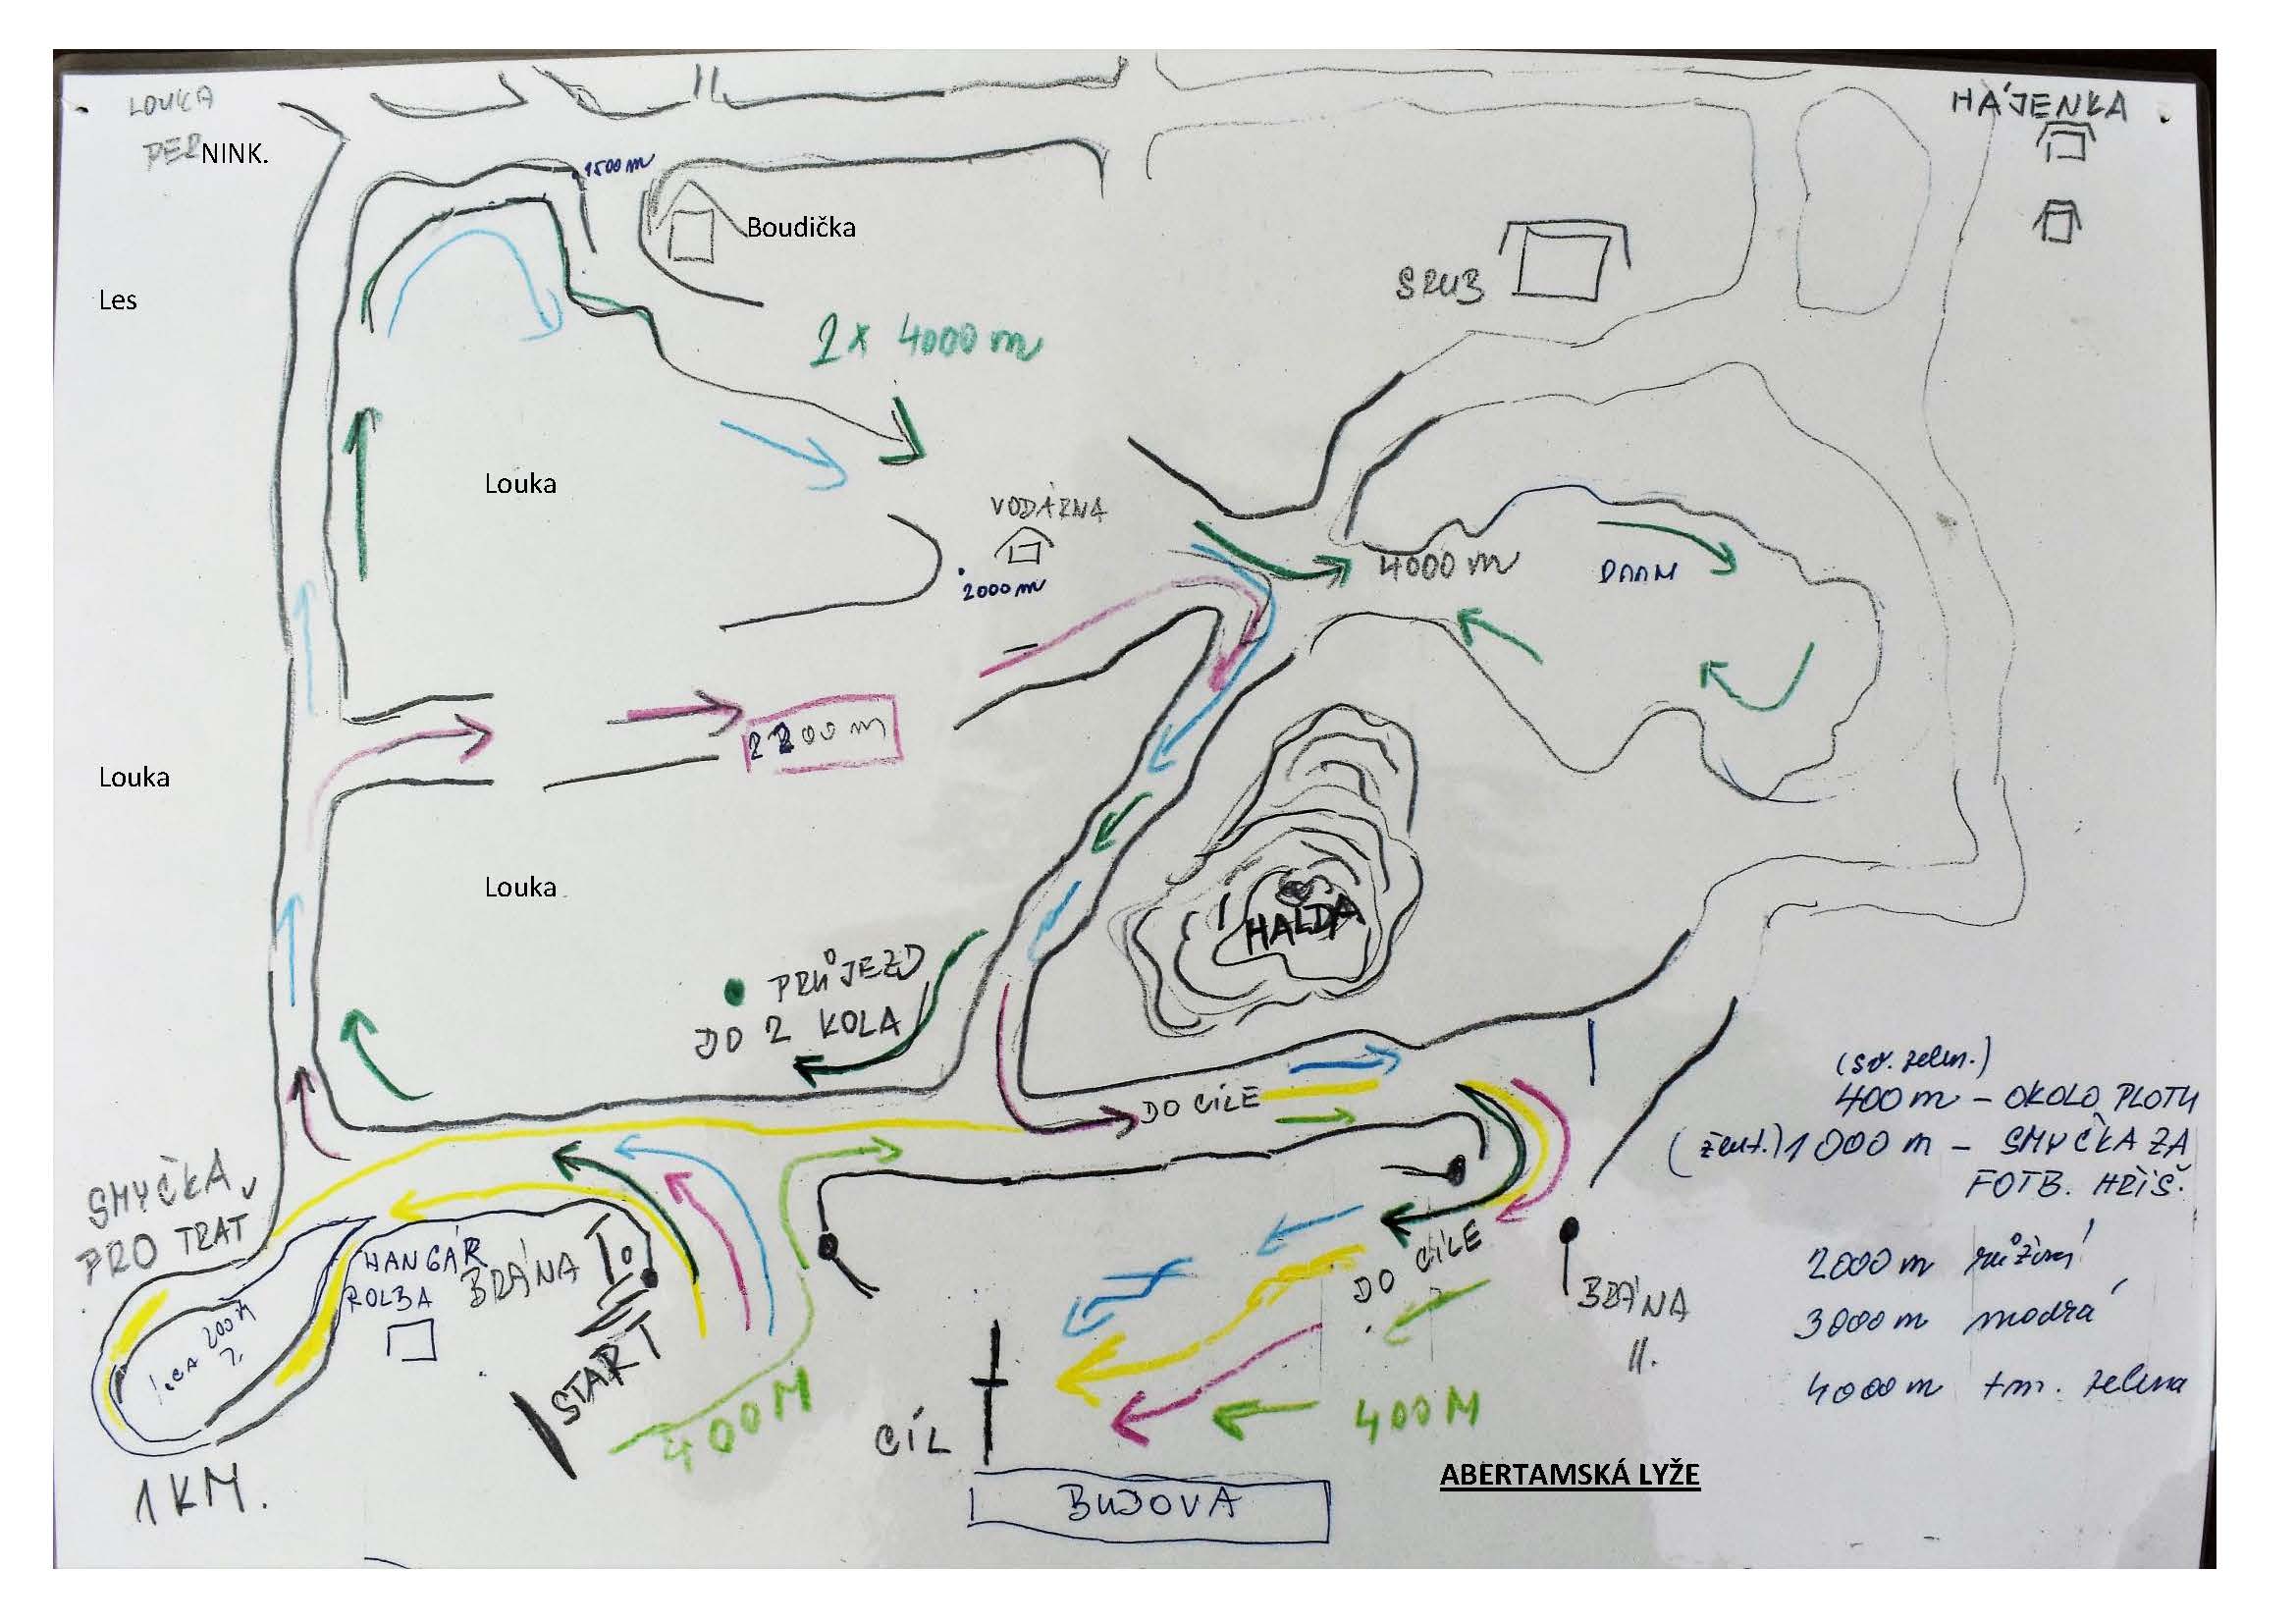 LOUKA
PERNINK.
HÁJENKA
1500 m
Boudička
Les
SRUB
2 x 4000 m
Louka
VODÁRNA
2000 m
4000 m
Louka
Louka
HALDA
PRŮJEZD
DO 2 KOLA
DO CÍLE
(sv. zelen.)
400 m - OKOLO PLOTU
(žlut.) 1000 m - SMYČKA ZA
FOTB. HŘIŠ.
2000 m růžová
3000 m modrá
4000 m tm. zelena
SMYČKA
PRO TRAT
HANGÁR
ROLBA
BRÁNA I.
START
400M
1 KM.
DO CÍLE
BRÁNA
II.
CÍL
400M
ABERTAMSKÁ LYŽE
BUJOVA